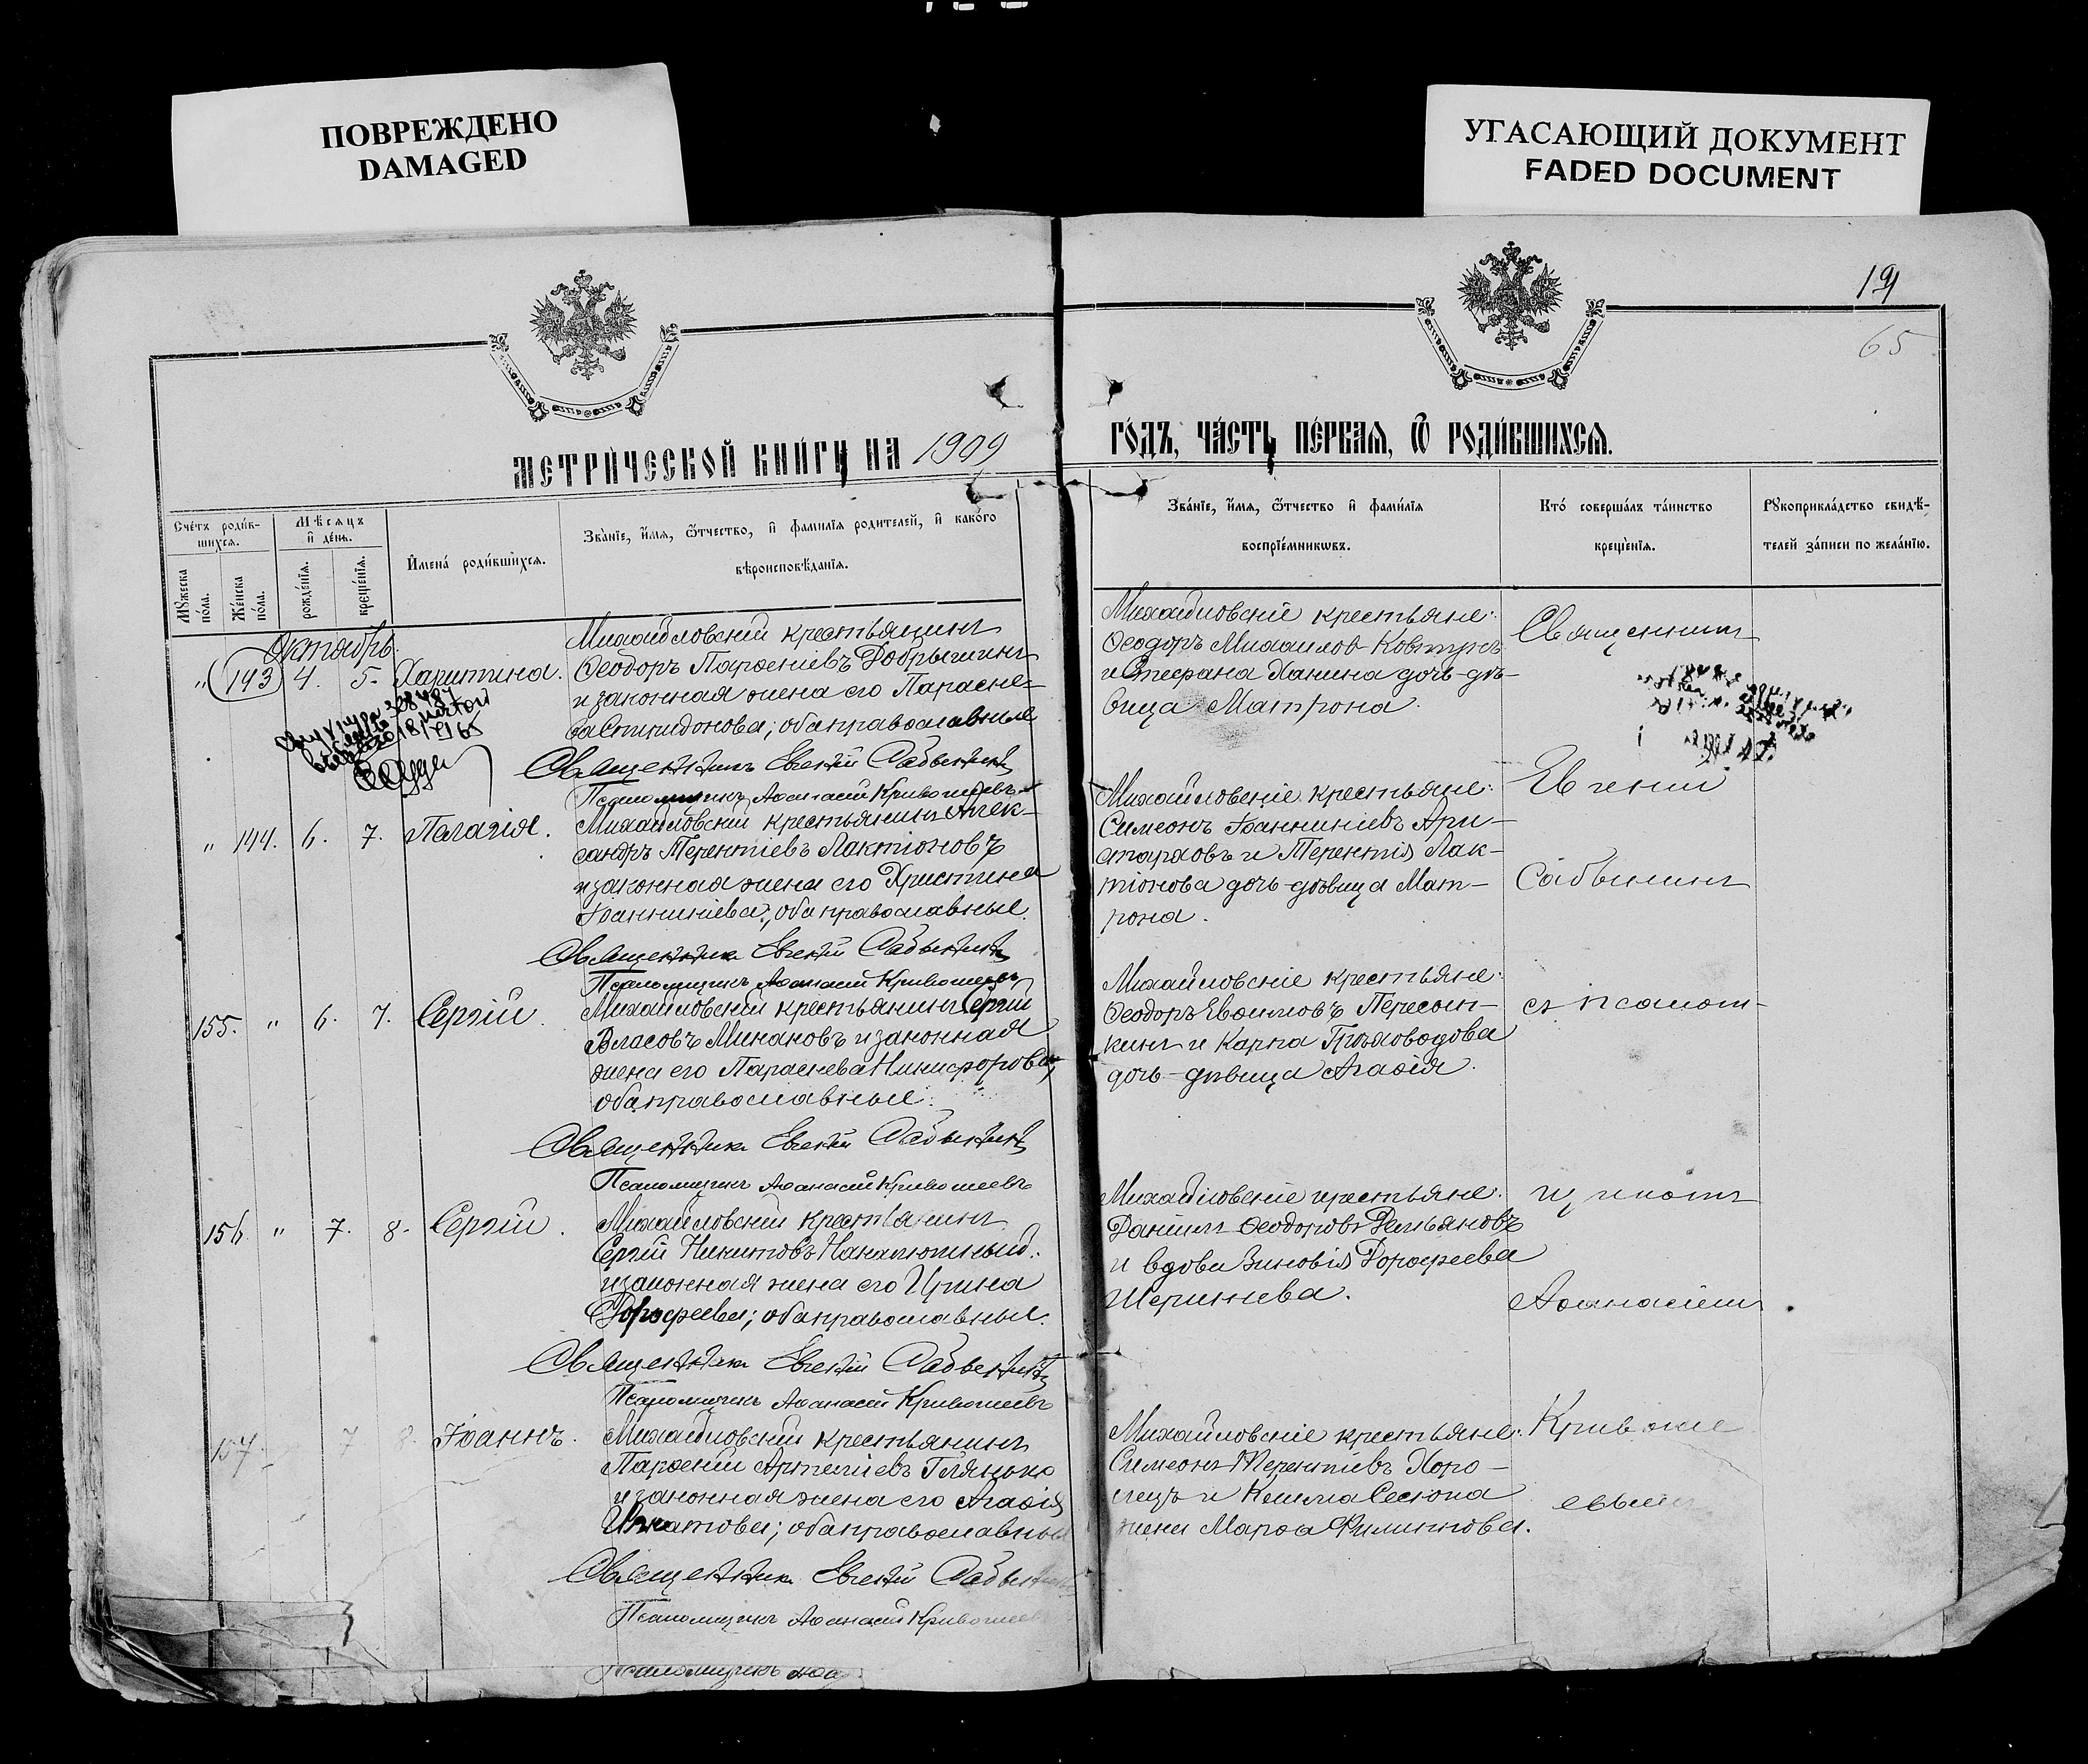 ПОВРЕЖДЕНО
DAMAGED
УГАСАЮЩИЙ ДОКУМЕНТ
FADED DOCUMENT
19
65
МЕТРИЧЕСКОЙ КНИГИ НА 1909
ГОДЪ, ЧАСТЬ ПЕРВАЯ, Ѡ РОДИВШИХСЯ.
Счетъ родив-
шихся.
Мужеска
пола.
Женска
пола.
Мѣсяцъ
и день.
рожденія.
крещенія.
Имена родившихся.
Званіе, имя, ѿчество, и фамилія родителей, и какого
вѣроисповѣданія.
Званіе, имя, ѿчество и фамилія
воспріемниковъ.
Кто совершалъ таинство
крещенія.
Рукоприкладство свидѣ-
телей записи по желанію.
Октябрь
" 143 4. 5. Харитина.
Михайловскій крестьянинъ
Ѳеодоръ Парѳеніевъ Добрышинъ
и законная жена его Параске-
ва Спиридонова; оба православные
Священникъ Евгеній Сабынинъ
Псаломщикъ Аѳанасій Кривошеевъ
Михайловскіе крестьяне:
Ѳеодоръ Михаилов Ковтунъ
и Стефана Ханина дочь-дѣ-
вица Матрона.
" 144. 6. 7. Пелагія.
Михайловскій крестьянинъ Алек-
сандръ Терентіевъ Лактіоновъ
и законная жена его Христина
Іоанникіева; оба православные.
Священникъ Евгеній Сабынинъ
Псаломщикъ Аѳанасій Кривошеевъ
Михайловскіе крестьяне:
Симеонъ Іоанникіевъ Ари-
старховъ и Терентія Лак-
тіонова дочь-дѣвица Мат-
рона.
155. " 6. 7. Сергій.
Михайловскій крестьянинъ Сергій
Власовъ Минаковъ и законная
жена его Параскева Никифорова;
оба православные.
Священникъ Евгеній Сабынинъ
Псаломщикъ Аѳанасій Кривошеевъ
Михайловскіе крестьяне:
Ѳеодоръ Евѳимовъ
и Карпа
дочь-дѣвица Агаѳія.
156. " 7. 8. Сергій.
Михайловскій крестьянинъ
Сергій Никитовъ
и законная жена его Ирина
Дорофеева; оба православные.
Священникъ Евгеній Сабынинъ
Псаломщикъ Аѳанасій Кривошеевъ
Михайловскіе крестьяне:
Даніилъ Ѳеодоровъ Демьяновъ
и вдова Зиновія Дорофеева
Шеринева.
157. 7 8. Іоаннъ.
Михайловскій крестьянинъ
Парѳеній Артеміевъ Глянько
и законная жена его Агаѳія
Игнатова; оба православные
Священникъ Евгеній Сабынинъ
Псаломщикъ Аѳанасій Кривошеев
Михайловскіе крестьяне:
Симеонъ Терентіевъ Хоро-
шецъ и
жена Марѳа Филиппова.
Псаломщикъ Аѳа
Священникъ
Евгеній
Сабынинъ
съ псалом-
щикомъ
Аѳанасіемъ
Кривоше
евым